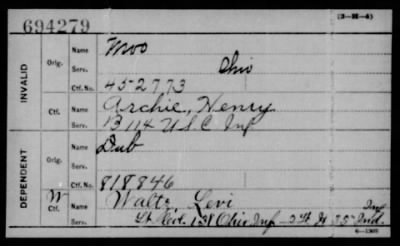 694279
(3-M-4)
INVALID
Orig.
Name Mvo
Serv. Ohio
Ctf. No. 452773
Ctf.
Name Archie, Henry
Serv. B 114 U S C Inf
DEPENDENT
Orig.
Name Dub
Serv.
Ctf. No. 818846
W
Ctf.
Name Waltz Levi
Serv. Lt. Col. 131 Ohio Inf Ind.
6-1909